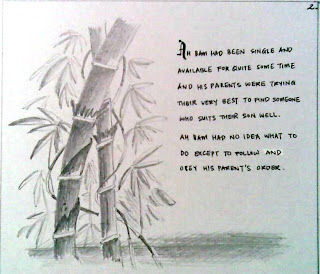 2.
AH BAM HAD BEEN SINGLE AND
AVAILABLE FOR QUITE SOME TIME
AND HIS PARENTS WERE TRYING
THEIR VERY BEST TO FIND SOMEONE
WHO SUITS THEIR SON WELL.
AH BAM HAD NO IDEA WHAT TO
DO EXCEPT TO FOLLOW AND
OBEY HIS PARENT'S ORDER.